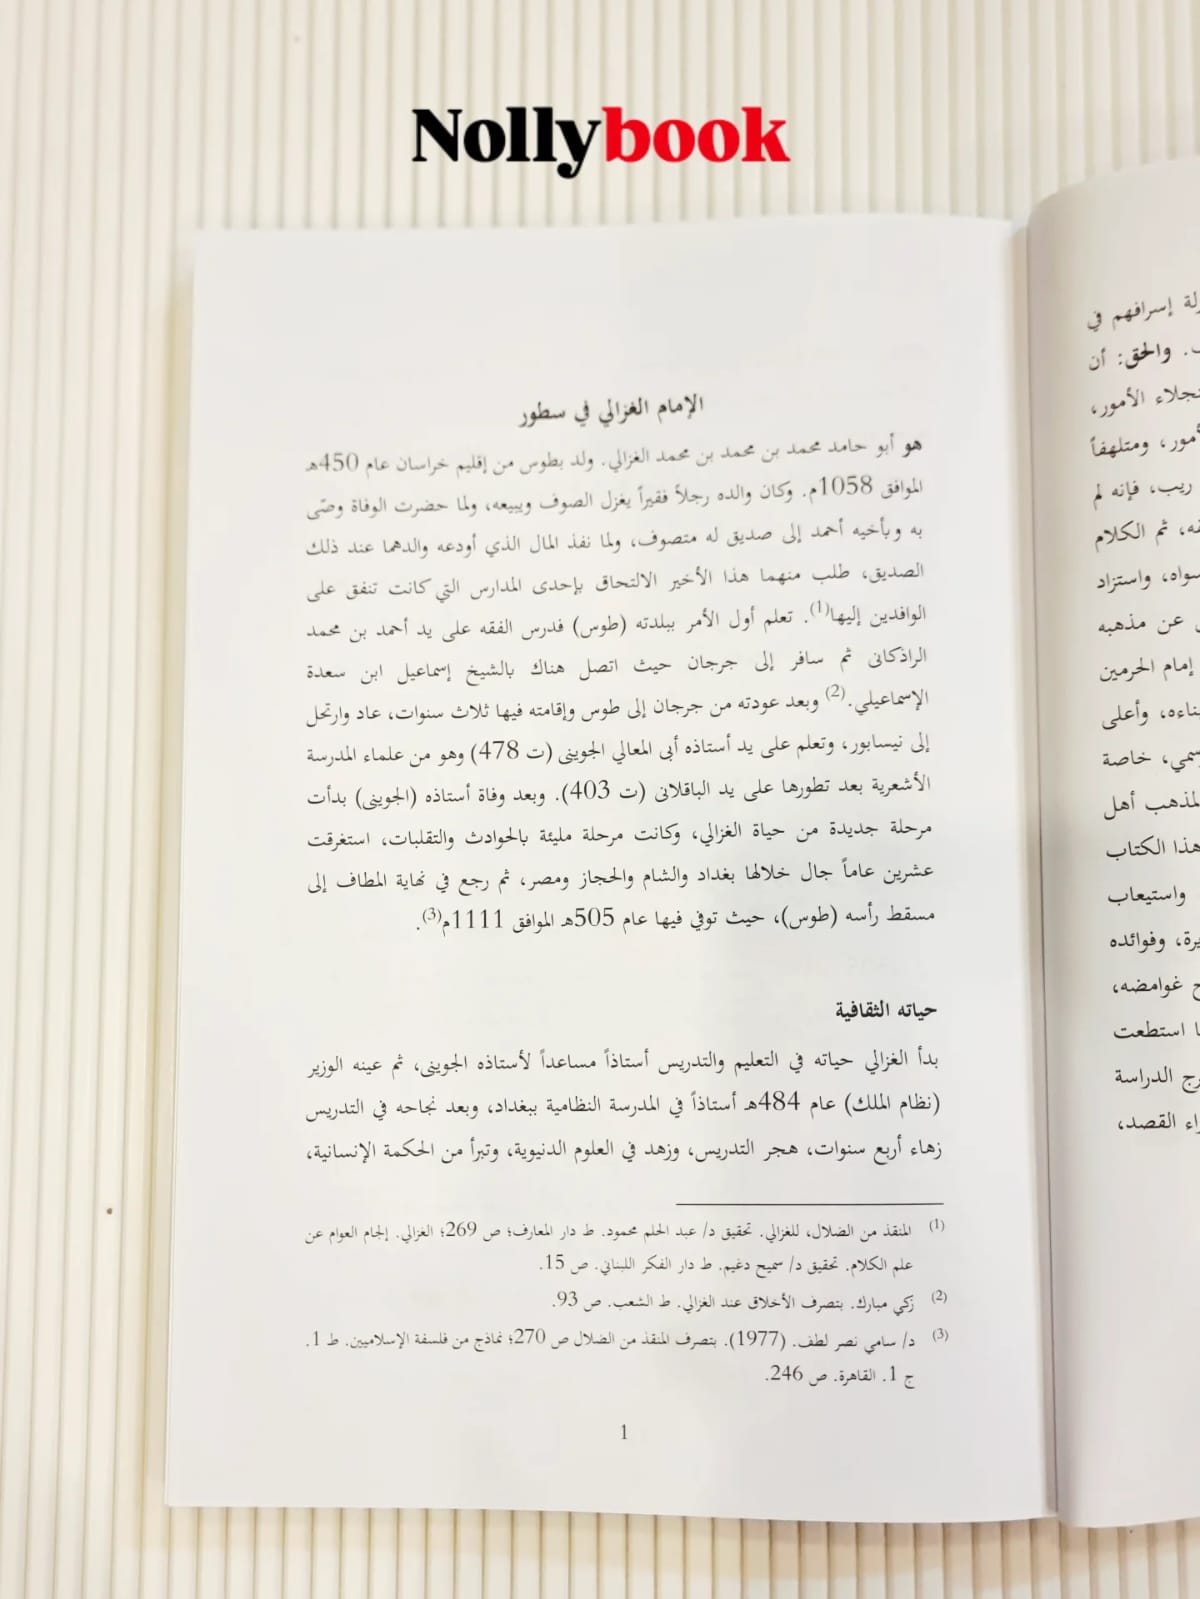 Nollybook
الإمام الغزالي في سطور
هو أبو حامد محمد بن محمد بن محمد الغزالي. ولد بطوس من إقليم خراسان عام 450هـ
الموافق 1058م. وكان والده رجلاً فقيراً يغزل الصوف ويبيعه، ولما حضرت الوفاة وصّى
به وبأخيه أحمد إلى صديق له متصوف، ولما نفذ المال الذي أودعه والدهما عند ذلك
الصديق، طلب منهما هذا الأخير الالتحاق بإحدى المدارس التي كانت تنفق على
الوافدين إليها(1). تعلم أول الأمر ببلدته (طوس) فدرس الفقه على يد أحمد بن محمد
الراذكانى ثم سافر إلى جرجان حيث اتصل هناك بالشيخ إسماعيل ابن سعدة
الإسماعيلي.(2) وبعد عودته من جرجان إلى طوس وإقامته فيها ثلاث سنوات، عاد وارتحل
إلى نيسابور، وتعلم على يد أستاذه أبى المعالي الجوينى (ت 478) وهو من علماء المدرسة
الأشعرية بعد تطورها على يد الباقلانى (ت 403). وبعد وفاة أستاذه (الجوينى) بدأت
مرحلة جديدة من حياة الغزالي، وكانت مرحلة مليئة بالحوادث والتقلبات، استغرقت
عشرين عاماً جال خلالها بغداد والشام والحجاز ومصر، ثم رجع في نهاية المطاف إلى
مسقط رأسه (طوس)، حيث توفي فيها عام 505هـ الموافق 1111م(3).
حياته الثقافية
بدأ الغزالي حياته في التعليم والتدريس أستاذاً مساعداً لأستاذه الجوينى، ثم عينه الوزير
(نظام الملك) عام 484هـ أستاذاً في المدرسة النظامية ببغداد، وبعد نجاحه في التدريس
زهاء أربع سنوات، هجر التدريس، وزهد في العلوم الدنيوية، وتبرأ من الحكمة الإنسانية،
(1) المنقذ من الضلال، للغزالي. تحقيق د/ عبد الحلم محمود. ط دار المعارف؛ ص 269؛ الغزالي. إلجام العوام عن
علم الكلام. تحقيق د/ سميح دغيم. ط دار الفكر اللبناني. ص 15.
(2) زكي مبارك. بتصرف الأخلاق عند الغزالي. ط الشعب. ص 93.
(3) د/ سامي نصر لطف. (1977). بتصرف المنقذ من الضلال ص 270؛ نماذج من فلسفة الإسلاميين. ط 1.
ج 1. القاهرة. ص 246.
1
إسرافهم في
والحق: أن
الأمور،
ومتلهفاً
ريب، فإنه لم
ثم الكلام
سواه، واستزاد
عن مذهبه
إمام الحرمين
وأعلى
خاصة
أهل
هذا الكتاب
واستيعاب
وفوائده
غوامضه،
استطعت
الدراسة
القصد،